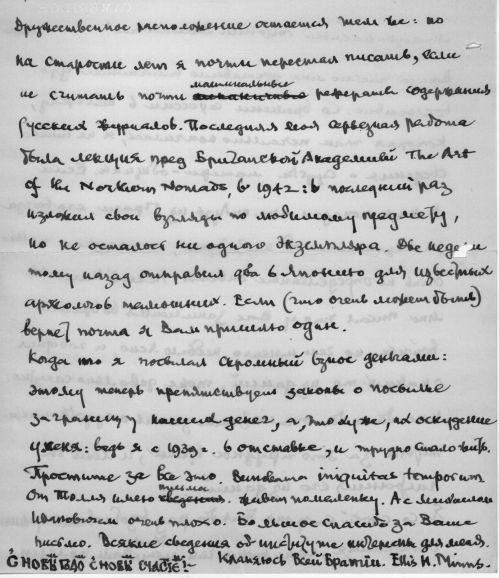 Дружественное расположение остается тем же: но
на старости лет я почти перестал писать, если
не считать почти машинальные рефераты содержания
русских журналов. Последняя моя серьезная работа
была лекция пред Британской Академией The Art
of the Northern Nomads, в 1942: в последний раз
изложил свои взгляды по любимому предмету,
но не осталось ни одного экземпляра. Две недели
тому назад отправил два в Японию для известных
археологов тамошних. Если (что очень может быть)
вернет почта я Вам пришлю один.
Когда то я посылал скромный взнос деньгами:
этому теперь препятствуют законы о посылке
заграницу наших денег, а, что хуже, их оскудение
у меня: ведь я с 1939 г. в отставке, и трудно стало жить.
Простите за все это. Виновата iniquitas temporum
От Толля имею письма: живет помаленьку. А с Михаилом
Ивановичем очень плохо. Большое спасибо за Ваше
письмо. Всякие сведения об институте интересны для меня.
Кланяюсь Всей Братии. Ellis H. Minns.